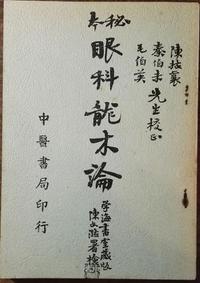 陳拔羣
秦伯未先生校正
毛伯英
秘本
眼科龍木論
學海書室藏版
陳文澔署檢
中醫書局印行